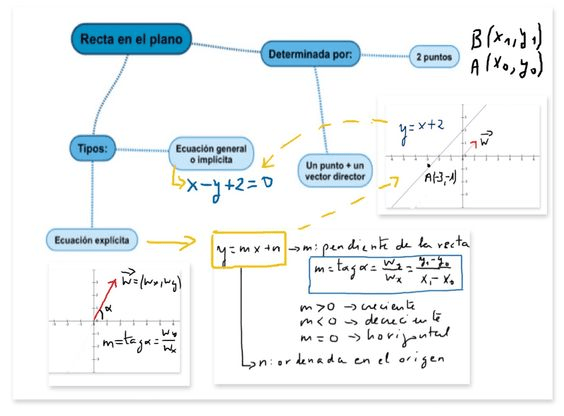 Recta en el plano
Determinada por:
2 puntos
B(x₁,y₁)
A(x₀,y₀)
Tipos:
Ecuación general
o implícita
x-y+2=0
Un punto + un
vector director
y=x+2
w
A(-3,-1)
Ecuación explícita
y=mx+n → m: pendiente de la recta
m=tagα=w₂/wₓ=y₁-y₀/x₁-x₀
m>0 → creciente
m<0 → decreciente
m=0 → horizontal
n: ordenada en el origen
w=(wₓ,wy)
α
m=tagα=wy/wₓ